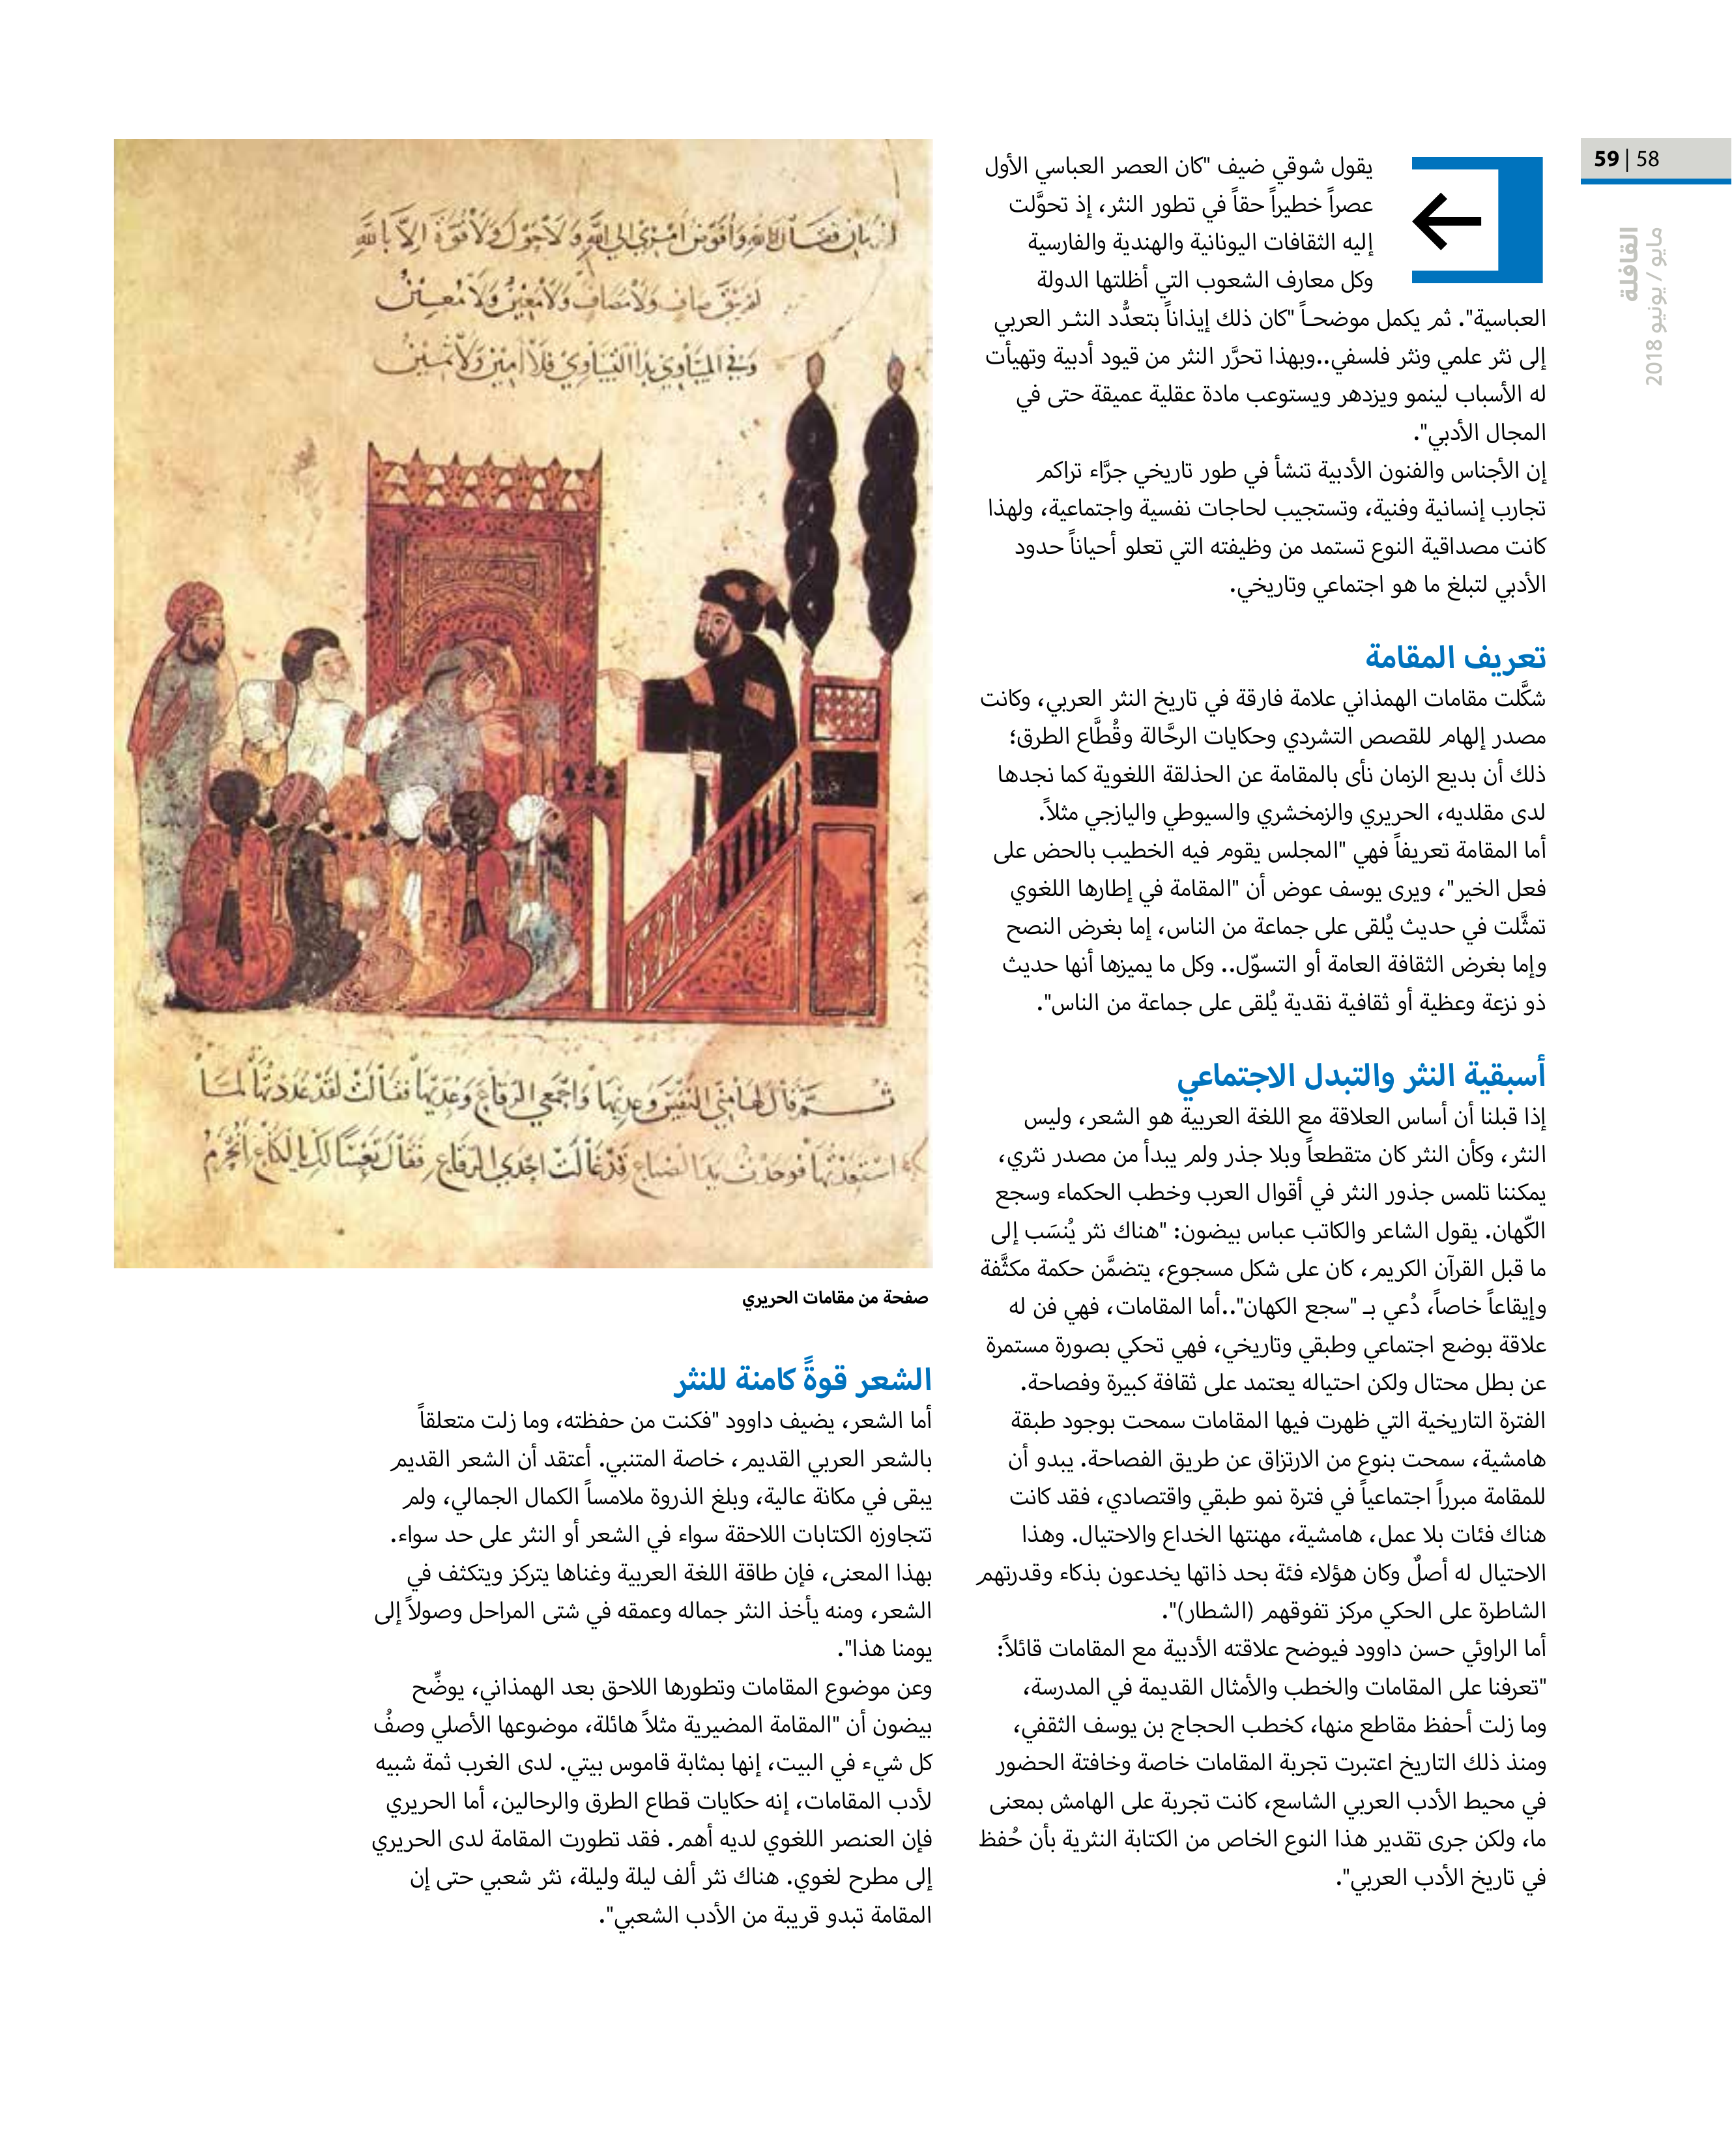 58 | 59
القافلة
مايو / يونيو 2018
يقول شوقي ضيف "كان العصر العباسي الأول
عصراً خطيراً حقاً في تطور النثر، إذ تحوَّلت
إليه الثقافات اليونانية والهندية والفارسية
وكل معارف الشعوب التي أظلتها الدولة
العباسية". ثم يكمل موضحـاً "كان ذلك إيذاناً بتعدُّد النثـر العربي
إلى نثر علمي ونثر فلسفي..وبهذا تحرَّر النثر من قيود أدبية وتهيأت
له الأسباب لينمو ويزدهر ويستوعب مادة عقلية عميقة حتى في
المجال الأدبي".
إن الأجناس والفنون الأدبية تنشأ في طور تاريخي جرَّاء تراكم
تجارب إنسانية وفنية، وتستجيب لحاجات نفسية واجتماعية، ولهذا
كانت مصداقية النوع تستمد من وظيفته التي تعلو أحياناً حدود
الأدبي لتبلغ ما هو اجتماعي وتاريخي.
تعريف المقامة
شكَّلت مقامات الهمذاني علامة فارقة في تاريخ النثر العربي، وكانت
مصدر إلهام للقصص التشردي وحكايات الرحَّالة وقُطَّاع الطرق؛
ذلك أن بديع الزمان نأى بالمقامة عن الحذلقة اللغوية كما نجدها
لدى مقلديه، الحريري والزمخشري والسيوطي واليازجي مثلاً.
أما المقامة تعريفاً فهي "المجلس يقوم فيه الخطيب بالحض على
فعل الخير"، ويرى يوسف عوض أن "المقامة في إطارها اللغوي
تمثَّلت في حديث يُلقى على جماعة من الناس، إما بغرض النصح
وإما بغرض الثقافة العامة أو التسوّل.. وكل ما يميزها أنها حديث
ذو نزعة وعظية أو ثقافية نقدية يُلقى على جماعة من الناس".
أسبقية النثر والتبدل الاجتماعي
إذا قبلنا أن أساس العلاقة مع اللغة العربية هو الشعر، وليس
النثر، وكأن النثر كان متقطعاً وبلا جذر ولم يبدأ من مصدر نثري،
يمكننا تلمس جذور النثر في أقوال العرب وخطب الحكماء وسجع
الكّهان. يقول الشاعر والكاتب عباس بيضون: "هناك نثر يُنسَب إلى
ما قبل القرآن الكريم، كان على شكل مسجوع، يتضمَّن حكمة مكثَّفة
وإيقاعاً خاصاً، دُعي بـ "سجع الكهان"..أما المقامات، فهي فن له
علاقة بوضع اجتماعي وطبقي وتاريخي، فهي تحكي بصورة مستمرة
عن بطل محتال ولكن احتياله يعتمد على ثقافة كبيرة وفصاحة.
الفترة التاريخية التي ظهرت فيها المقامات سمحت بوجود طبقة
هامشية، سمحت بنوع من الارتزاق عن طريق الفصاحة. يبدو أن
للمقامة مبرراً اجتماعياً في فترة نمو طبقي واقتصادي، فقد كانت
هناك فئات بلا عمل، هامشية، مهنتها الخداع والاحتيال. وهذا
الاحتيال له أصلٌ وكان هؤلاء فئة بحد ذاتها يخدعون بذكاء وقدرتهم
الشاطرة على الحكي مركز تفوقهم (الشطار)".
أما الراوئي حسن داوود فيوضح علاقته الأدبية مع المقامات قائلاً:
"تعرفنا على المقامات والخطب والأمثال القديمة في المدرسة،
وما زلت أحفظ مقاطع منها، كخطب الحجاج بن يوسف الثقفي،
ومنذ ذلك التاريخ اعتبرت تجربة المقامات خاصة وخافتة الحضور
في محيط الأدب العربي الشاسع، كانت تجربة على الهامش بمعنى
ما، ولكن جرى تقدير هذا النوع الخاص من الكتابة النثرية بأن حُفظ
في تاريخ الأدب العربي".
صفحة من مقامات الحريري
الشعر قوةً كامنة للنثر
أما الشعر، يضيف داوود "فكنت من حفظته، وما زلت متعلقاً
بالشعر العربي القديم، خاصة المتنبي. أعتقد أن الشعر القديم
يبقى في مكانة عالية، وبلغ الذروة ملامساً الكمال الجمالي، ولم
تتجاوزه الكتابات اللاحقة سواء في الشعر أو النثر على حد سواء.
بهذا المعنى، فإن طاقة اللغة العربية وغناها يتركز ويتكثف في
الشعر، ومنه يأخذ النثر جماله وعمقه في شتى المراحل وصولاً إلى
يومنا هذا".
وعن موضوع المقامات وتطورها اللاحق بعد الهمذاني، يوضِّح
بيضون أن "المقامة المضيرية مثلاً هائلة، موضوعها الأصلي وصفُ
كل شيء في البيت، إنها بمثابة قاموس بيتي. لدى الغرب ثمة شبيه
لأدب المقامات، إنه حكايات قطاع الطرق والرحالين، أما الحريري
فإن العنصر اللغوي لديه أهم. فقد تطورت المقامة لدى الحريري
إلى مطرح لغوي. هناك نثر ألف ليلة وليلة، نثر شعبي حتى إن
المقامة تبدو قريبة من الأدب الشعبي".